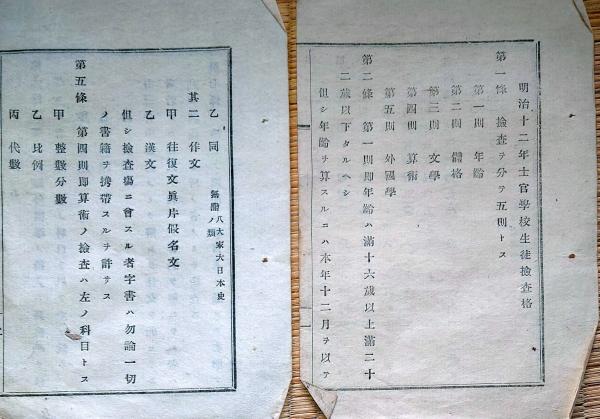 明治十二年士官學校生徒撿查格
第一條 撿查ヲ分テ五則トス
第一則 年齡
第二則 體格
第三則 文學
第四則 算術
第五則 外國學
第二條 第一則即年齡ハ滿十六歲以上滿二十
二歲以下タルヘシ
但シ年齡ヲ算スルニハ本年十二月ヲ以テ
乙 同 無點八大家大日本史ノ類
其二 作文
甲 往復文眞片假名文
乙 漢文
但シ撿查塲ニ會スル者字書ハ勿論一切
ノ書籍ヲ携帶スルヲ許サス
第五條 第四則即算術ノ撿查ハ左ノ科目トス
甲 整數分數
乙 比例
丙 代數